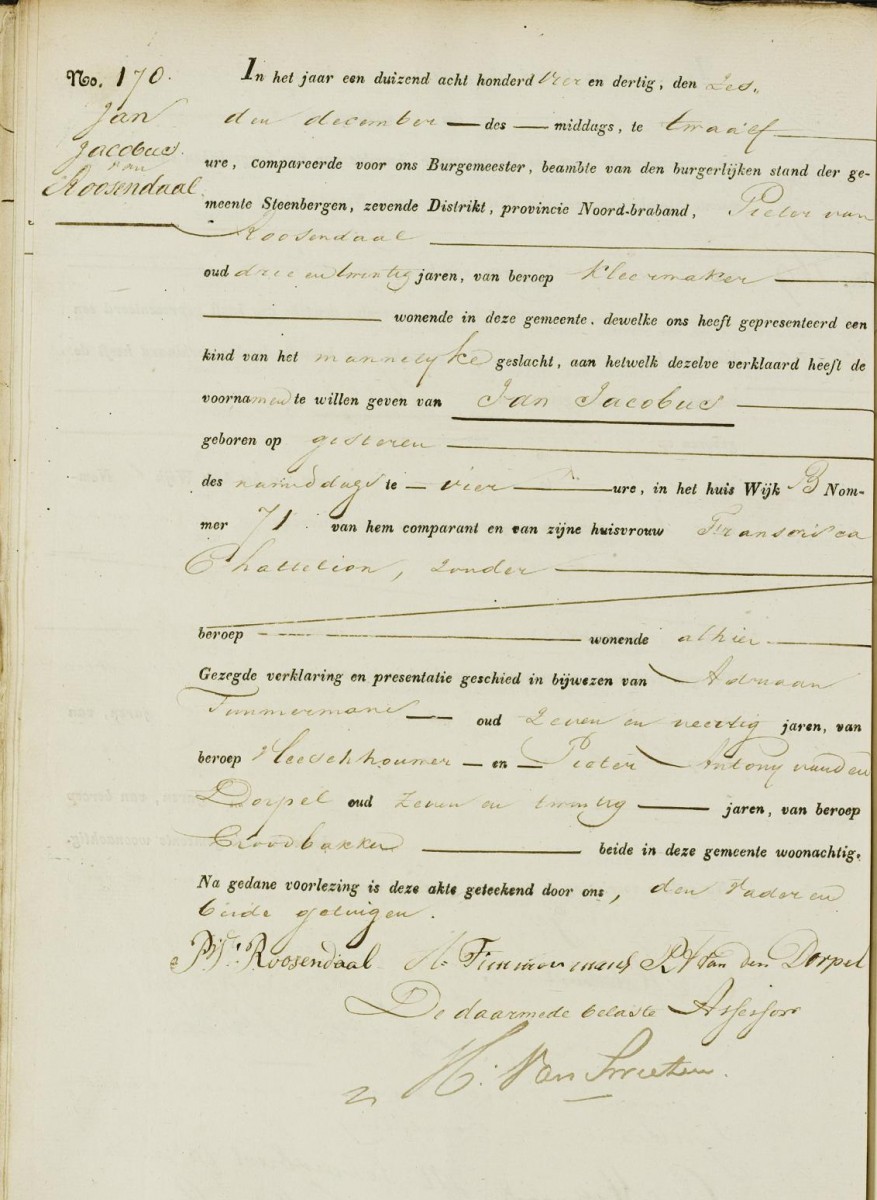 No. 170.
Jan
Jacobus
van
Roosendaal
In het jaar een duizend acht honderd vier en dertig, den zes
den december — des — middags, te twaalf
ure, compareerde voor ons Burgemeester, beambte van den burgerlijken stand der ge-
meente Steenbergen, zevende Distrikt, provincie Noord-braband, Pieter van
Roosendaal
oud drie en twintig jaren, van beroep kleermaker
wonende in deze gemeente, dewelke ons heeft gepresenteerd een
kind van het mannelyke geslacht, aan hetwelk dezelve verklaard heeft de
voornamen te willen geven van Jan Jacobus
geboren op gisteren
des namiddags te — vier — ure, in het huis Wijk B Nom-
mer 71 van hem comparant en van zijne huisvrouw Fransisca
Chattelion, zonder
beroep — wonende alhier
Gezegde verklaring en presentatie geschied in bijwezen van Adriaan
Timmermans — oud zeven en veertig jaren, van
beroep Vleeschhouwer — en — Pieter Antony van den
Dorpel oud zeven en twintig — jaren, van beroep
Broodbakker — beide in deze gemeente woonachtig.
Na gedane voorlezing is deze akte geteekend door ons, den vader en
beide getuigen.
P: V: Roosendaal A. Timmermans P A Van den Dorpel
De daarmede belaste Assessor
H. Van Sweeten.